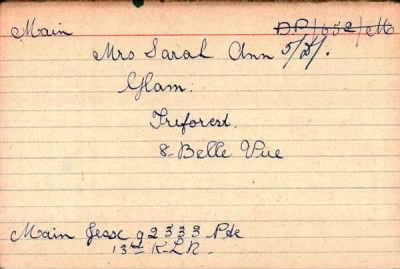 Main D.P/652/M
Mrs Sarah Ann 5/D/.
Glam:
Treforest.
8. Belle Vue
Main Jesse 92333 Pte
13th K.L.R.